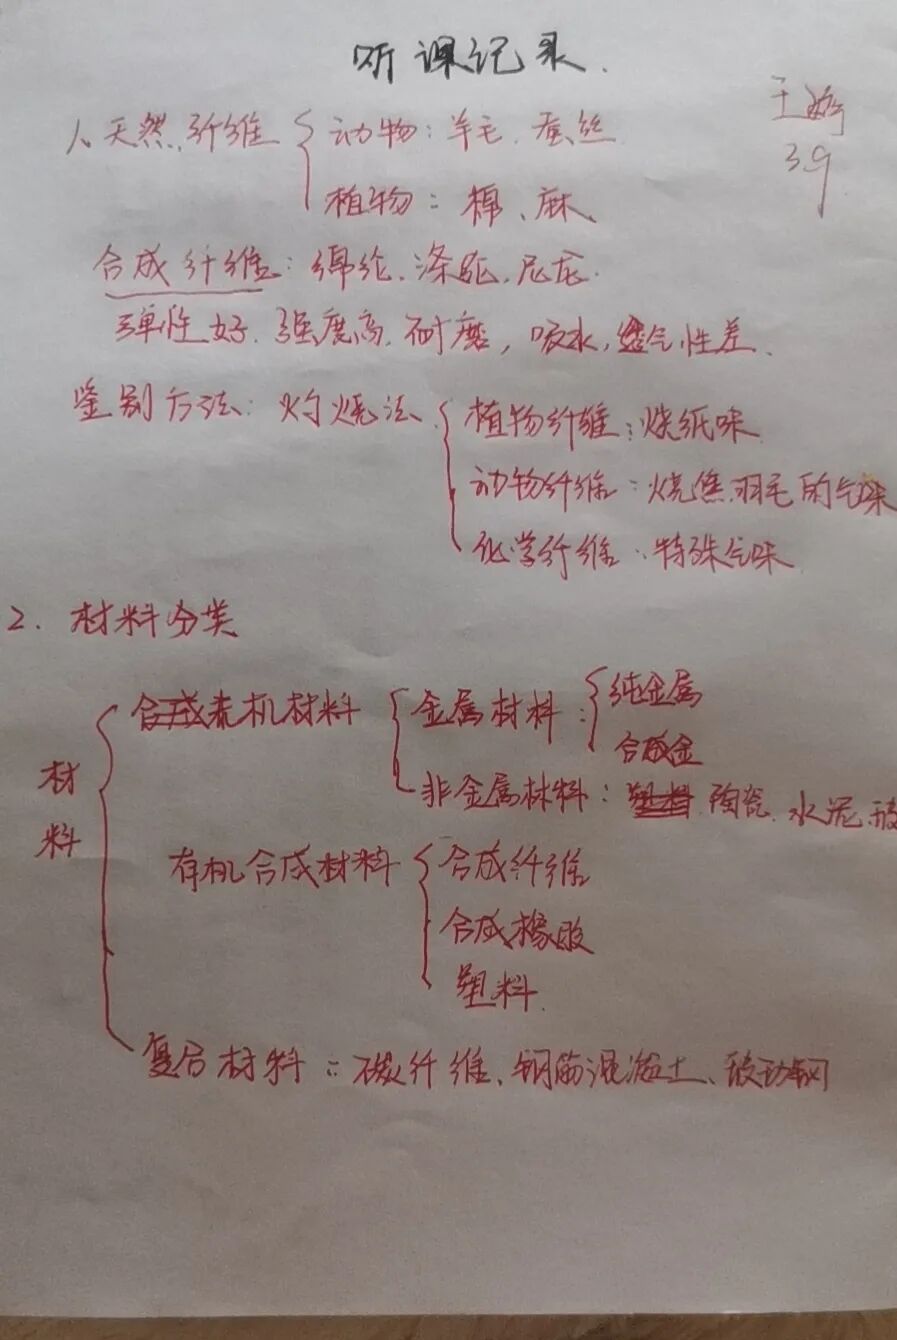 听课记录.
王娇
39
1、天然纤维 { 动物：羊毛、蚕丝
植物：棉、麻、
合成纤维：绵纶、涤纶、尼龙.
弹性好、强度高、耐磨，吸水，透气性差、
鉴别方法：灼烧法 { 植物纤维：烧纸味
动物纤维：烧焦羽毛的气味
化学纤维：特殊气味
2、材料分类
材料 { 无机材料 { 金属材料：{ 纯金属
合成金
非金属材料：陶瓷、水泥、玻
有机合成材料 { 合成纤维
合成橡胶
塑料
复合材料：碳纤维、钢筋混凝土、玻